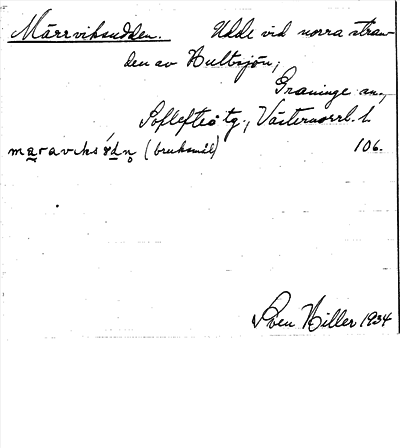 Märrviksudden. Udde vid norra stran-
den av Hultsjön,
Graninge sn,
Sollefteå tg., Västernorrl. l.
maravıksʉdn̥ (bruksmål) 106.
Sven Hiller 1934